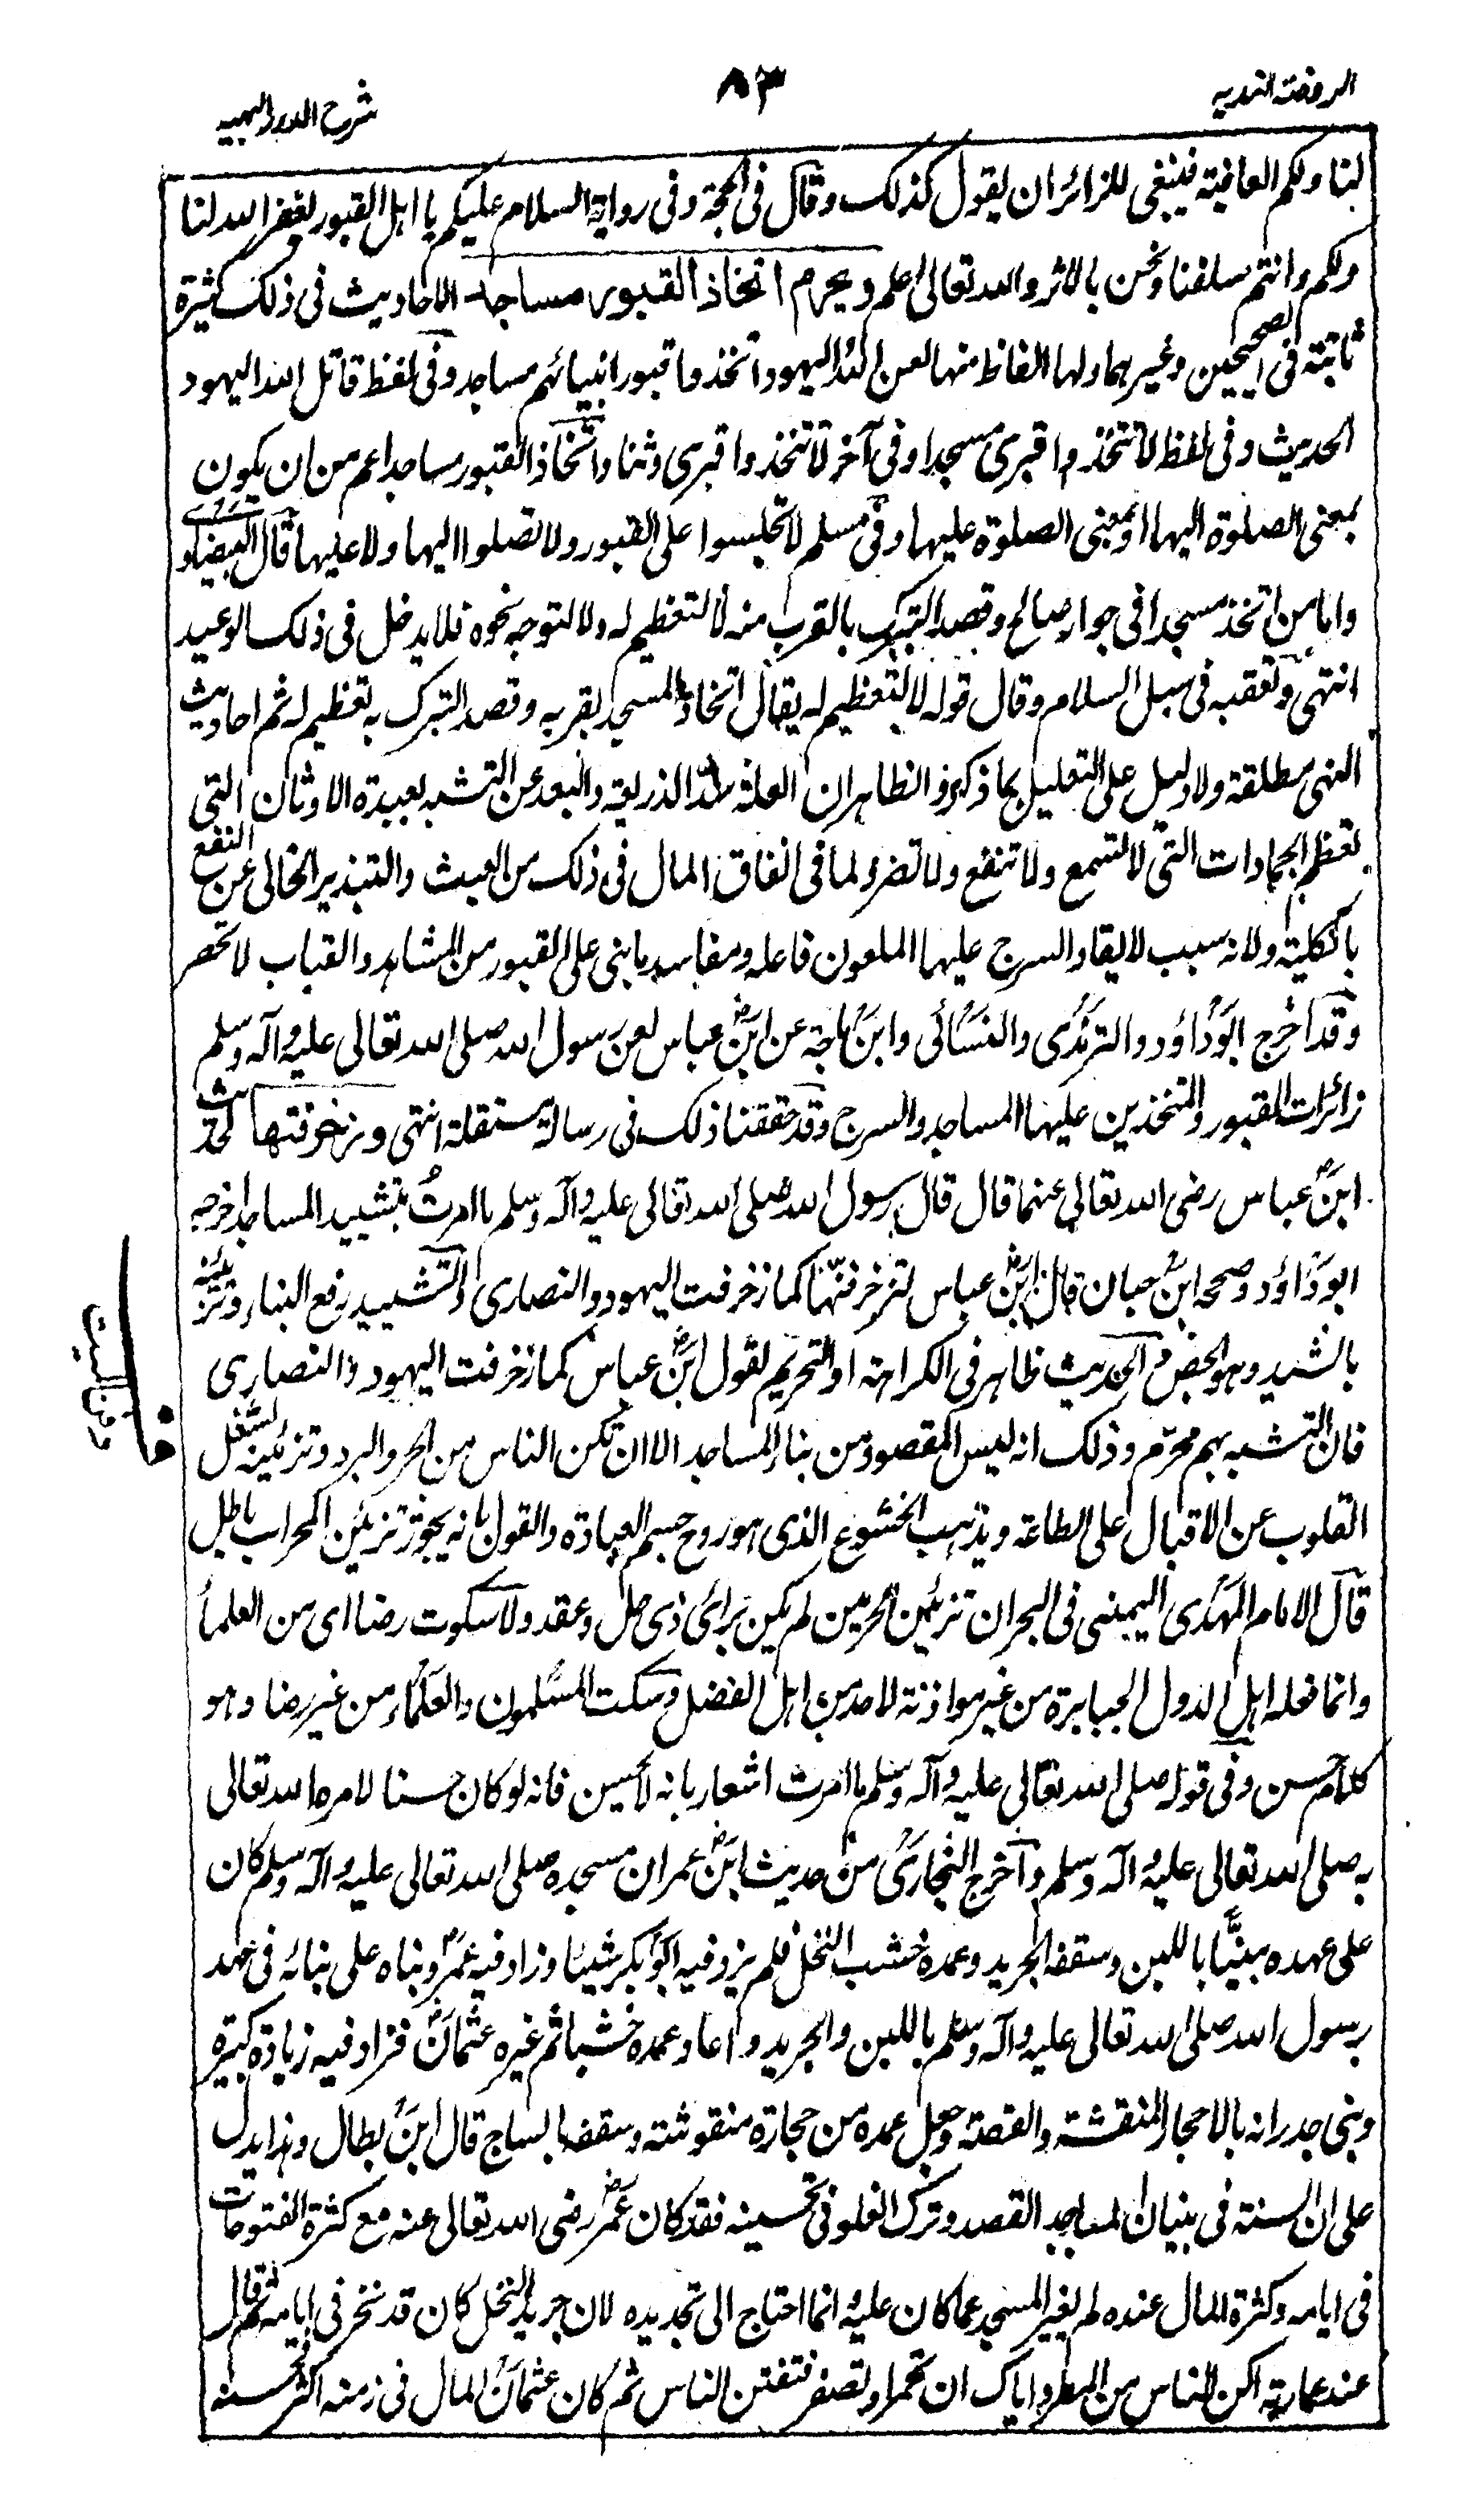 الروضة الندية
٨٣
شرح الدرر البهية
لنا ولكم العافية فينبغي للزائر ان يقول كذلك وقال في الحجة وفي رواية السلام عليكم يا اهل القبور يغفر الله لنا
ولكم وانتم سلفنا ونحن بالاثر والله تعالى اعلم ويحرم اتخاذ القبور مساجد الاحاديث في ذلك كثيرة
ثابتة في الصحيحين وغيرهما ولها الفاظ منها لعن الله اليهود اتخذوا قبور انبيائهم مساجد وفي لفظ قاتل الله اليهود
الحديث وفي لفظ لا تتخذوا قبري مسجدا وفي آخر لا تتخذوا قبري وثنا واتخاذ القبور مساجد اعم من ان يكون
بمعنى الصلوة اليها او بمعنى الصلوة عليها وفي مسلم لا تجلسوا على القبور ولا تصلوا اليها ولا عليها قال البيضاوي
واما من اتخذ مسجدا في جوار صالح وقصد التبرك بالقرب منه لا لتعظيم له ولا لتوجه نحوه فلا يدخل في ذلك الوعيد
انتهى وتعقبه في سبل السلام وقال قوله لا لتعظيم له يقال اتخاذ المسجد بقربه وقصد التبرك به تعظيم له ثم احاديث
النهي مطلقة ولا دليل على التعليل بما ذكر والظاهر ان العلة سد الذريعة والبعد عن التشبه بعبدة الاوثان التي
تعظم الجمادات التي لا تسمع ولا تنفع ولا تضر ولما في انفاق المال في ذلك من العبث والتبذير الخالي عن النفع
بالكلية ولانه سبب لايقاد السرج عليها الملعون فاعله ومفاسد ما بني على القبور من المشاهد والقباب لا تحصر
وقد اخرج ابو داؤد والترمذي والنسائي وابن ماجة عن ابن عباس لعن رسول الله صلى الله تعالى عليه وآله وسلم
زائرات القبور والمتخذين عليها المساجد والسرج وقد حققنا ذلك في رسالة مستقلة انتهى وزخرفتها لحديث
ابن عباس رضي الله تعالى عنهما قال قال رسول الله صلى الله تعالى عليه وآله وسلم ما امرت بتشييد المساجد اخرجه
ابو داؤد وصححه ابن حبان قال ابن عباس لتزخرفنها كما زخرفت اليهود والنصارى والتشييد رفع البناء وتزيينه
بالشيد وهو الجص والحديث ظاهر في الكراهة او التحريم لقول ابن عباس كما زخرفت اليهود والنصارى
فان التشبه بهم محرم وذلك انه ليس المقصود من بناء المساجد الا ان تكن الناس من الحر والبرد وتزيينه لشغل
القلوب عن الاقبال على الطاعة ويذهب الخشوع الذي هو روح جسم العبادة والقول بانه يجوز تزيين المحراب باطل
قال الامام المهدي اليمني في البحر ان تزيين الحرمين لم يكن برائ ذي حل وعقد ولا سكوت رضا اي من العلماء
وانما فعله اهل الدول الجبابرة من غير مواذنة لاحد من اهل الفضل وسكت المسلمون والعلماء من غير رضا وهو
كلام حسن وفي قوله صلى الله تعالى عليه وآله وسلم ما امرت اشعار بانه لا يحسن فانه لو كان حسنا لامره الله تعالى
به صلى الله تعالى عليه وآله وسلم واخرج البخاري من حديث ابن عمر ان مسجده صلى الله تعالى عليه وآله وسلم كان
على عهده مبنيا باللبن وسقفه الجريد وعمده خشب النخل فلم يزد فيه ابو بكر شيئا وزاد فيه عمر وبناه على بنائه في عهد
رسول الله صلى الله تعالى عليه وآله وسلم باللبن والجريد واعاد عمده خشبا ثم غيره عثمان فزاد فيه زيادة كبيرة
وبنى جدرانه بالاحجار المنقشة والقصة وجعل عمده من حجارة منقوشة وسقفه بالساج قال ابن بطال وهذا يدل
على ان السنة في بنيان المساجد القصد وترك الغلو في تحسينه فقد كان عمر رضي الله تعالى عنه مع كثرة الفتوحات
في ايامه وكثرة المال عنده لم يغير المسجد عما كان عليه وانما احتاج الى تجديده لان جريد النخل كان قد نخر في ايامه ثم قال
عند عمارته اكن الناس من المطر واياك ان تحمر او تصفر فتفتن الناس ثم كان عثمان والمال في زمنه اكثر فحسنه